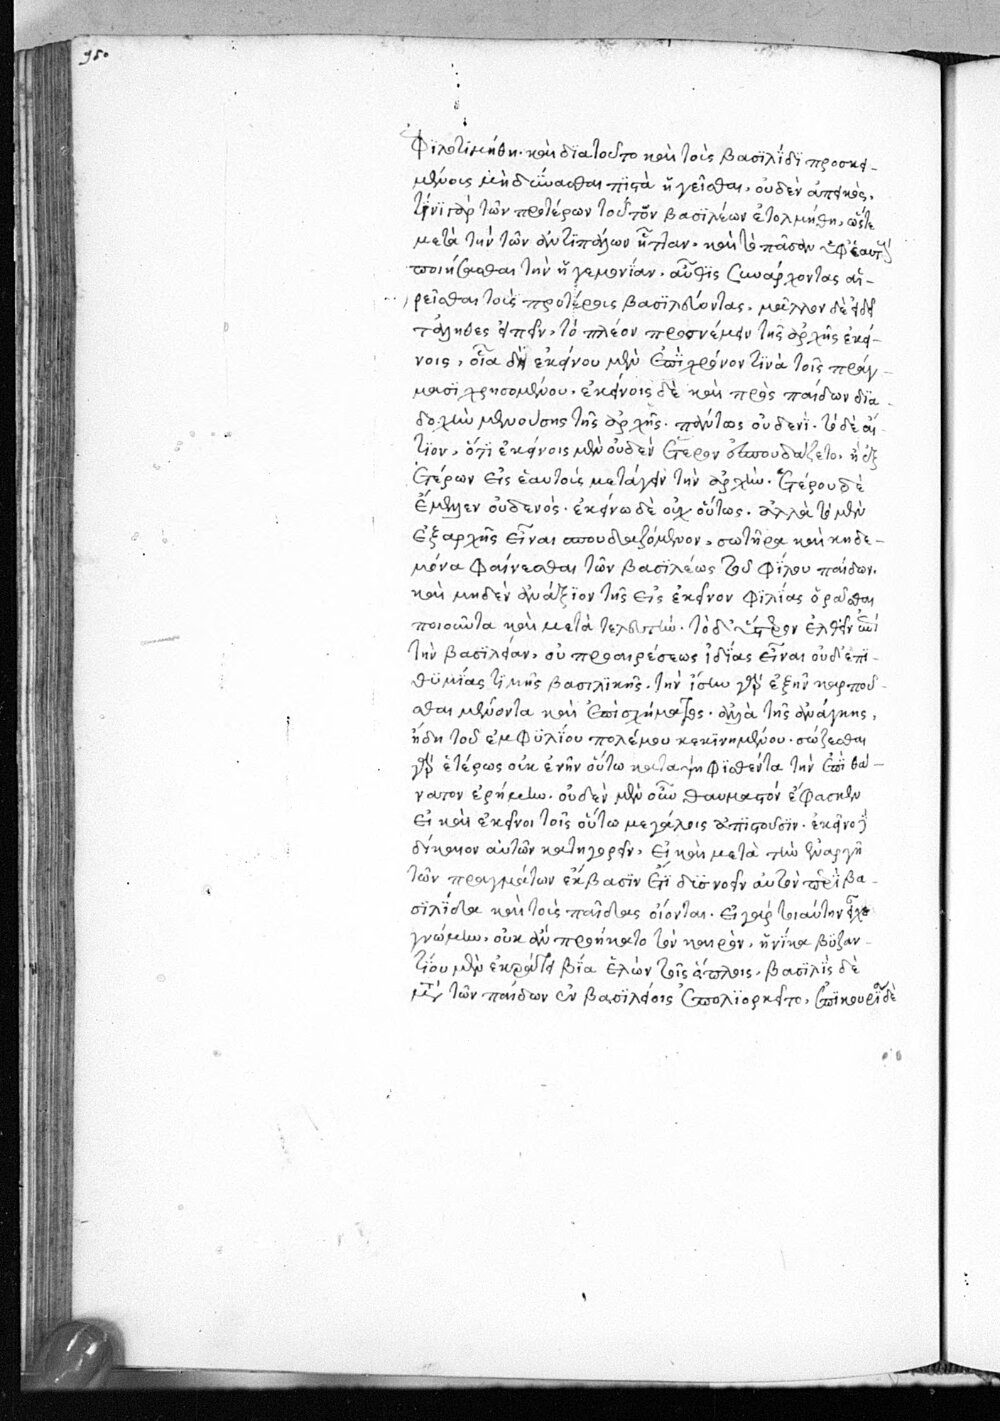 950
ἐφιλοτιμήθη. καὶ διατοῦτο καὶ τοῖς βασιλίδι προσκει-
μένοις μὴ δύνασθαι πιστὰ ἡγεῖσθαι, οὐδὲν ἀπεικὸς,
τίνι γὰρ τῶν προτέρων τοῦτο τῶν βασιλέων ἐτολμήθη, ὥστε
μετὰ τὴν τῶν ἀντιπάλων ἧτταν, καὶ τὸ πᾶσαν ἐφ' ἑαυτὸν
ποιήσασθαι τὴν ἡγεμονίαν, αὖθις συνάρχοντας αἱ-
ρεῖσθαι τοὺς προτέρους βασιλεύοντας, μᾶλλον δὲ εἰ δεῖ
τἀληθὲς εἰπεῖν, τὸ πλέον προσνέμειν τῆς ἀρχῆς ἐκεί-
νοις, οἷα δὴ ἐκείνου μὲν ἐπὶ χρόνον τινὰ τοῖς πράγ-
μασι χρησομένου, ἐκείνοις δὲ καὶ πρὸς παίδων δια-
δοχὴν μενούσης τῆς ἀρχῆς. πάντως οὐδενί. τὸ δὲ αἴ-
τιον, ὅτι ἐκείνοις μὲν οὐδὲν ἕτερον ἐσπουδάζετο, ἢ ἐξ
ἑτέρων εἰς ἑαυτοὺς μετάγειν τὴν ἀρχήν. ἑτέρου δὲ
ἔμελλεν οὐδενός. ἐκείνῳ δὲ οὐχ οὕτως. ἀλλὰ τὸ μὲν
ἐξαρχῆς εἶναι σπουδαζόμενον, σωτῆρα καὶ κηδε-
μόνα φαίνεσθαι τῶν βασιλέως τοῦ φίλου παίδων,
καὶ μηδὲν ἀνάξιον τῆς εἰς ἐκεῖνον φιλίας ὁρᾶσθαι
ποιοῦντα καὶ μετὰ τελευτήν. τὸ δ' ὕστερον ἐλθεῖν ἐπὶ
τὴν βασιλείαν, οὐ προαιρέσεως ἰδίας εἶναι οὐδ' ἐπι-
θυμίας τιμῆς βασιλικῆς. τὴν ἴσην γὰρ ἐξῆν καρποῦ-
σθαι μένοντα καὶ ἐπὶ σχήματος. ἀλλὰ τῆς ἀνάγκης,
ἤδη τοῦ ἐμφυλίου πολέμου κεκινημένου. σώζεσθαι
γὰρ ἑτέρως οὐκ ἐνῆν οὕτω καταψηφισθέντα τὴν ἐπὶ θα-
νατον ἐρήμην. οὐδὲν μὲν οὖν θαυμαστόν ἔφασκεν
εἰ καὶ ἐκεῖνοι τοῖς οὕτω μεγάλοις ἀπιστοῦσιν. ἐκεῖνο
δίκαιον αὐτῶν κατηγορεῖν, εἰ καὶ μετὰ τὴν ἐναργῆ
τῶν πραγμάτων ἔκβασιν ἔτι δυσνοεῖν αὐτὸν περὶ βα-
σιλίδα καὶ τοὺς παῖδας οἴονται. εἰ γὰρ τοιαύτην εἶχε
γνώμην, οὐκ ἂν προήκατο τὸν καιρὸν, ἡνίκα βυζαν-
τίου μὲν ἐκράτει βίᾳ ἑλὼν τοῖς ὅπλοις, βασιλὶς δὲ
μετὰ τῶν παίδων ἐν βασιλείοις ἐπολιορκεῖτο, ἐπικουρία δὲ